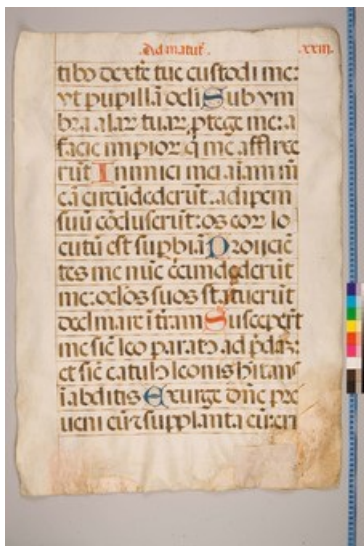 Ad matut̃. .xxiii.
tibꝰ dexte tue custodi me:
vt pupillã ocli Sub vm
bra alar̃ tuar̃. ꝓtege me: a
facie impior̃ q̃ me afflixe
rũt Inimici mei aĩam m̃
eã circũdederũt: adipem
suũ cõcluserũt: os eor̃ lo
cutũ est supbiã Proiiciẽ
tes me nũc circũdederũt
me: oclõs suos statuerũt
declinare ĩ trãm Susceperũt
me sic̃ leo parat9 ad p̃dã:
et sic̃ catul9 leonis hĩtans
ĩ abditis Exurge dñe pre
ueni eũ ⁊ supplanta eũ: eri